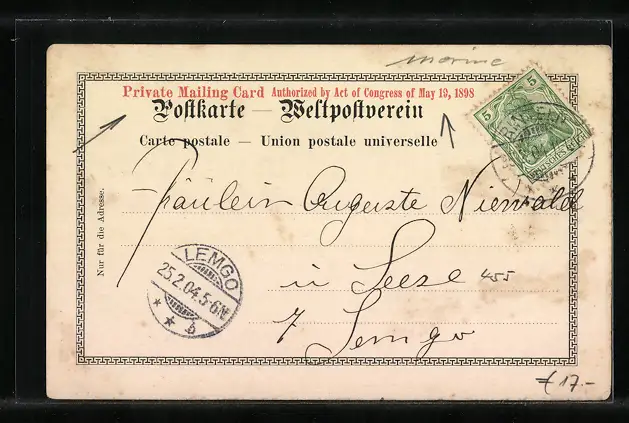 marine
Private Mailing Card Authorized by Act of Congress of May 19, 1898
Postkarte — Weltpostverein
Carte postale — Union postale universelle
Nur für die Adresse.
5 5
Fräulein Auguste Nienwald
in Leese 455
Lemgo
LEMGO
25.2.04.5-6N
* * b
€ 17.-